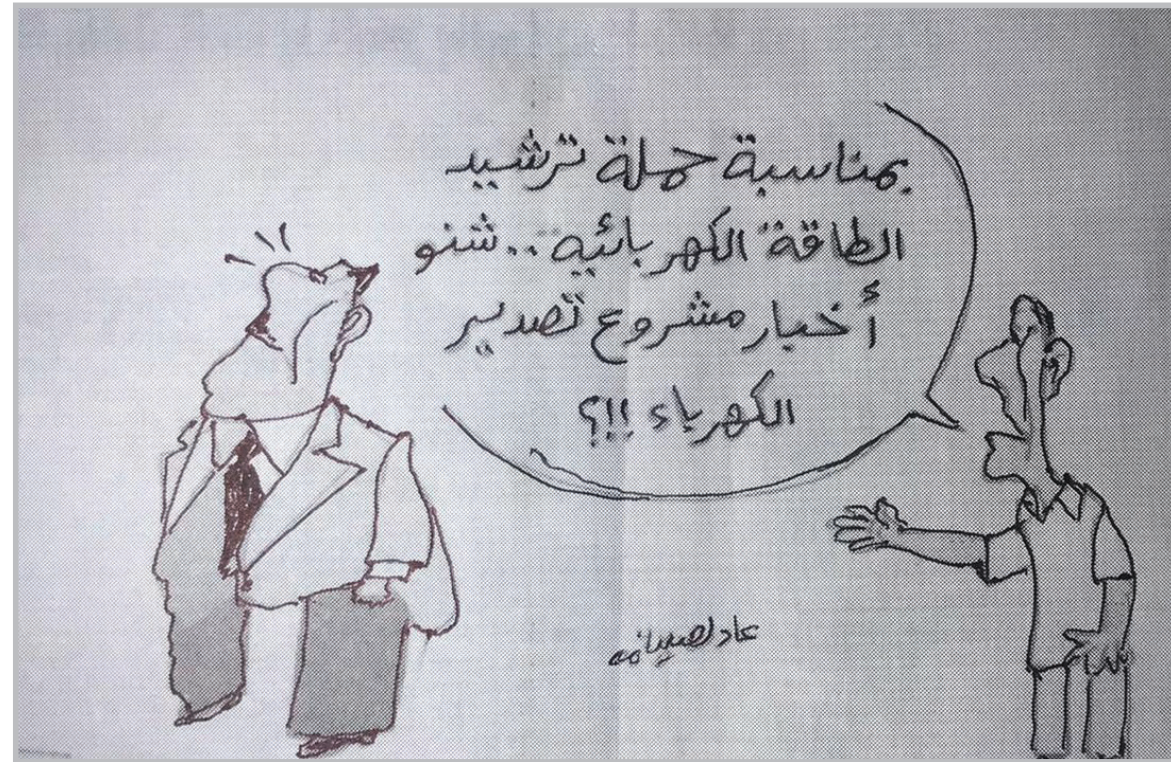 بمناسبة حملة ترشيد
الطاقة الكهربائية .. شنو
أخبار مشروع تصدير
الكهرباء !!؟
عادل صبيانه